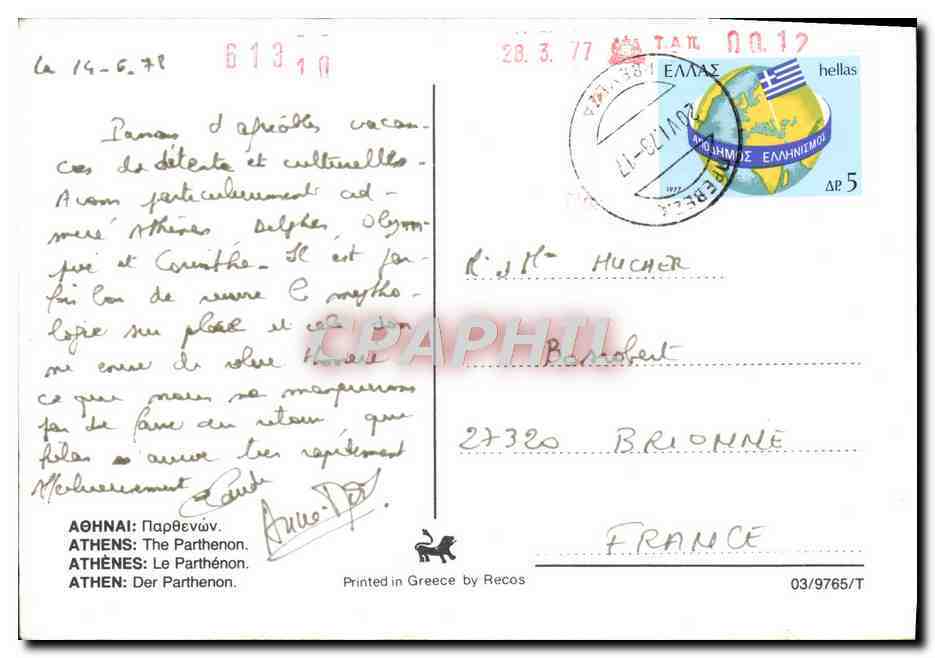 Le 14-6-78
613 10
28.3.77 Τ.Α.Π. 00.12
Passons d'agréables vacan-
ces de détente et culturelles.
Avons particulièrement ad-
miré Athènes Delphes, Olym-
pie et Corinthe. Il est par-
fois bon de revivre la mytho-
logie sur place et cela don
ne envie de relire Homère
ce que nous ne manquerons
pas de faire au retour, que
hélas arrive très rapidement
Affectueusement
Claude
Anne-
ΕΛΛΑΣ hellas
ΑΠΟΔΗΜΟΣ ΕΛΛΗΝΙΣΜΟΣ
1977
ΔΡ. 5
20 VI 78-17
ΠΡΕΒΕΖΑ
M. et Mme HUCHER
Bosrobert
27320 BRIONNE
FRANCE
CPAPHIL
ΑΘΗΝΑΙ: Παρθενών.
ATHENS: The Parthenon.
ATHÈNES: Le Parthénon.
ATHEN: Der Parthenon.
Printed in Greece by Recos
03/9765/T